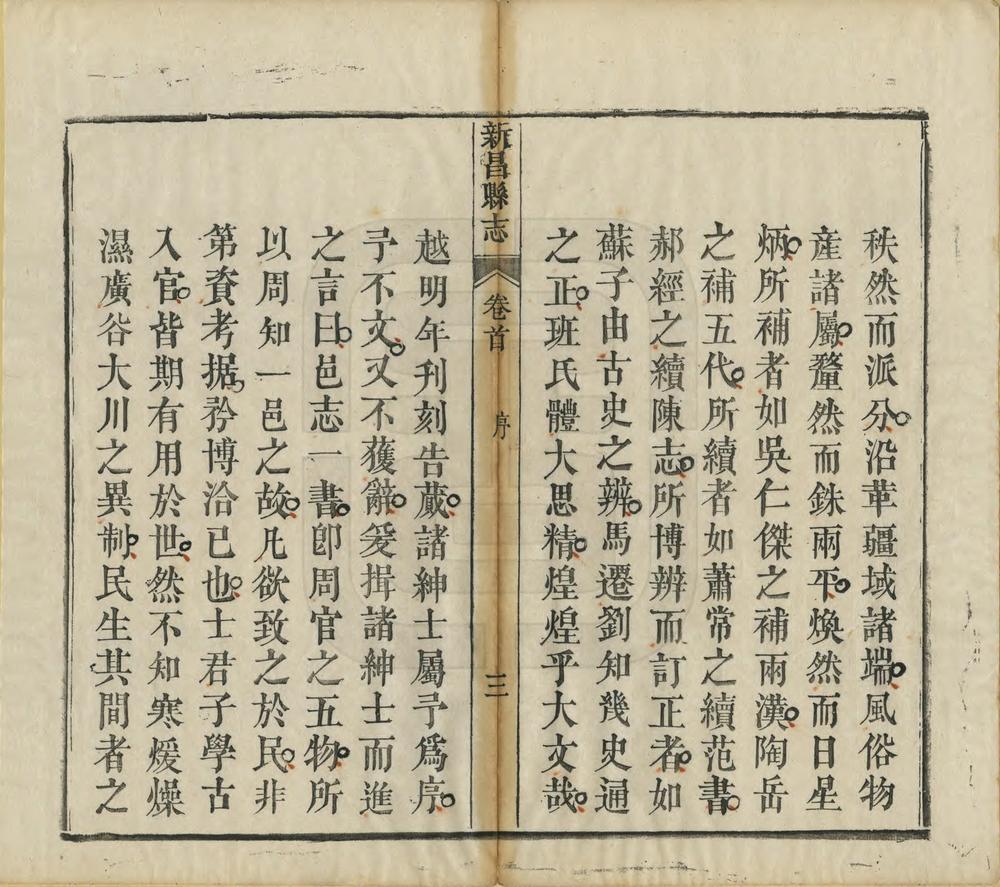 秩然而派分沿革疆域諸端風俗物
産諸屬釐然而銖兩平煥然而日星
炳所補者如吳仁傑之補兩漢陶岳
之補五代所續者如蕭常之續范書
郝經之續陳志所博辨而訂正者如
蘇子由古史之辨馬遷劉知幾史通
之正班氏體大思精煌煌乎大文哉
新昌縣志
卷首
序
三
越明年刋刻告蕆諸紳士屬予爲序
予不文又不獲辭爰揖諸紳士而進
之言曰邑志一書卽周官之五物所
以周知一邑之故凡欲致之於民非
第資考据矜博洽已也士君子學古
入官皆期有用於世然不知寒煖燥
濕廣谷大川之異制民生其間者之